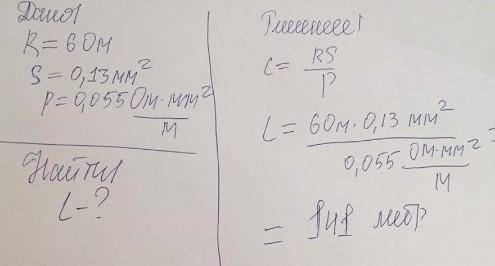 Дано:
R=6 Ом
S=0,13 мм²
ρ=0,055 Ом·мм²/м
Найти
L-?
Решение:
L= RS/ρ
L= 6 Ом·0,13 мм² / 0,055 Ом·мм²/м =
= 141 метр